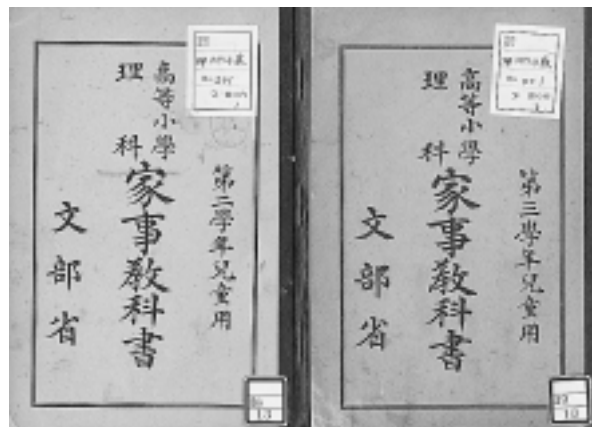 高等小學
理科
家事教科書
第二學年兒童用
文部省
高等小學
理科
家事教科書
第三學年兒童用
文部省